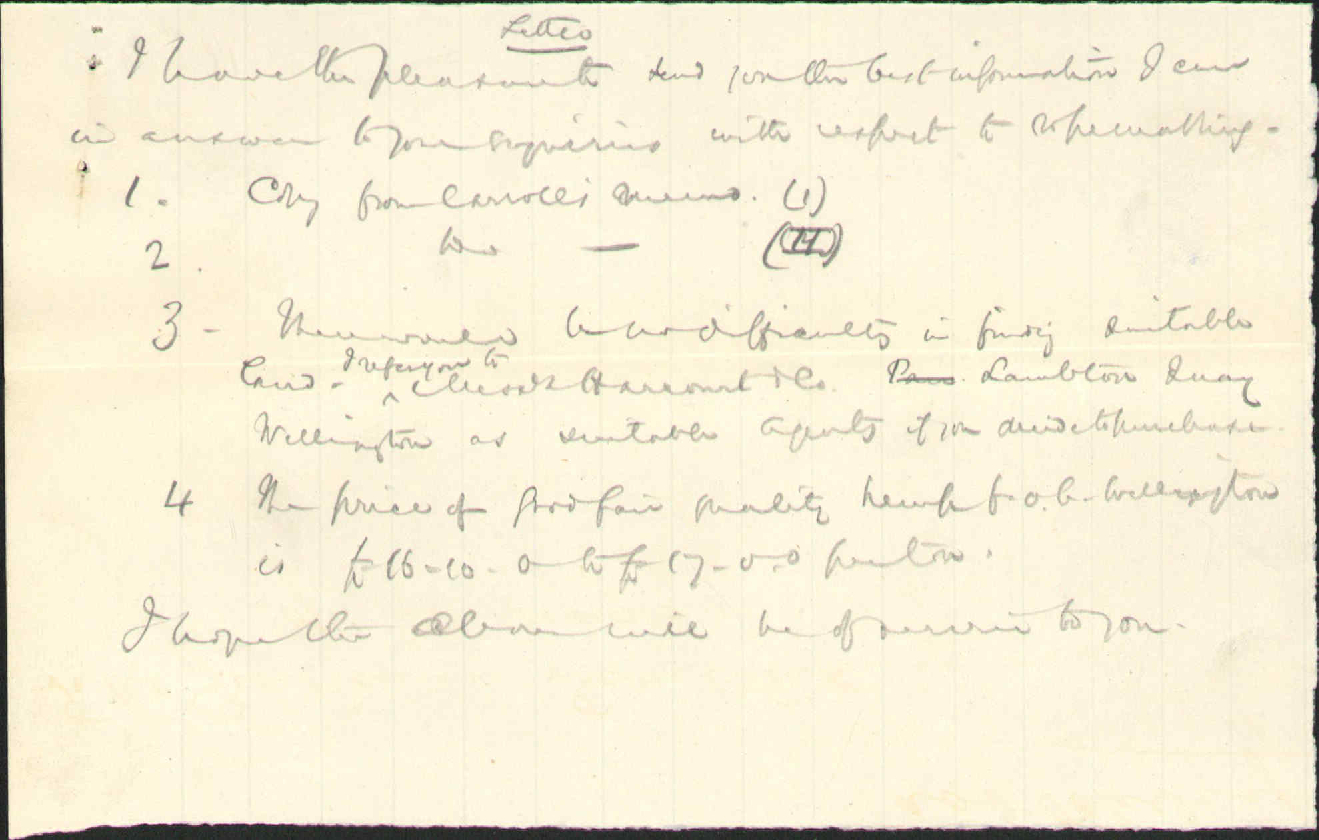 Letter
I have the pleasure to send you the best information I can
in answer to your enquiries with respect to ropemaking -
1. Copy from Carroll's memo. (1)
2. do — (11)
3 - There would be no difficulty in finding suitable
land - I refer you to Messrs Harcourt & Co. Lambton Quay
Wellington as suitable agents if you decide to purchase.
4 The price of good fair quality hemp f.o.b. Wellington
is £16-10-0 to £17-0-0 per ton.
I hope the above will be of service to you.